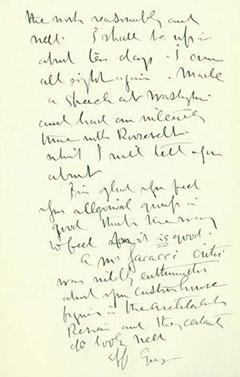 the work reasonably and
well. I shall be up in
about ten days. I am
all right again. Made
a speech at Washington
and had an
time with Roosevelt
which I will tell you
about
I'm glad you feel
your allegorical group is
good that's the way
to feel it is good.
A Mr Jaccaci critic
was wildly enthusiastic
about your Custom house
figures in the Architectural
Review and they certainly
do look well
aff